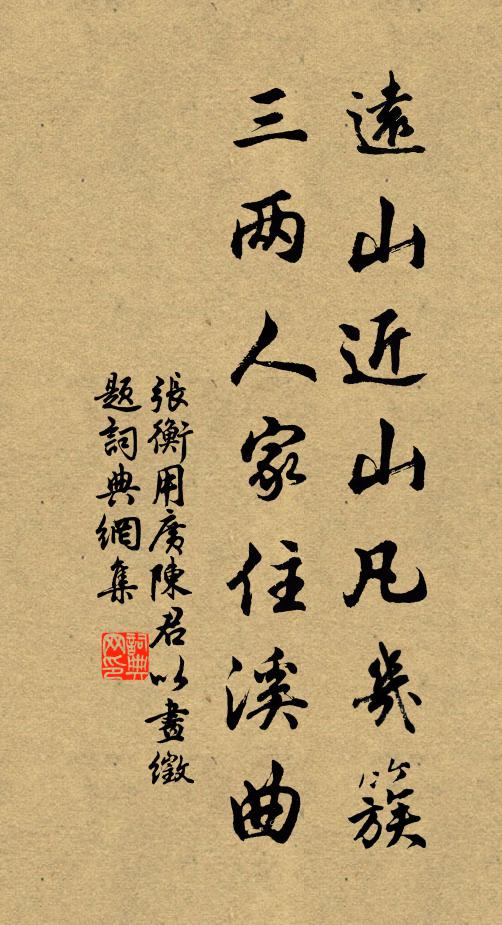 遠山近山凡幾簇
三两人家住溪曲
張衡用廣陳君以畫徵
題詞典網集
詞典网印